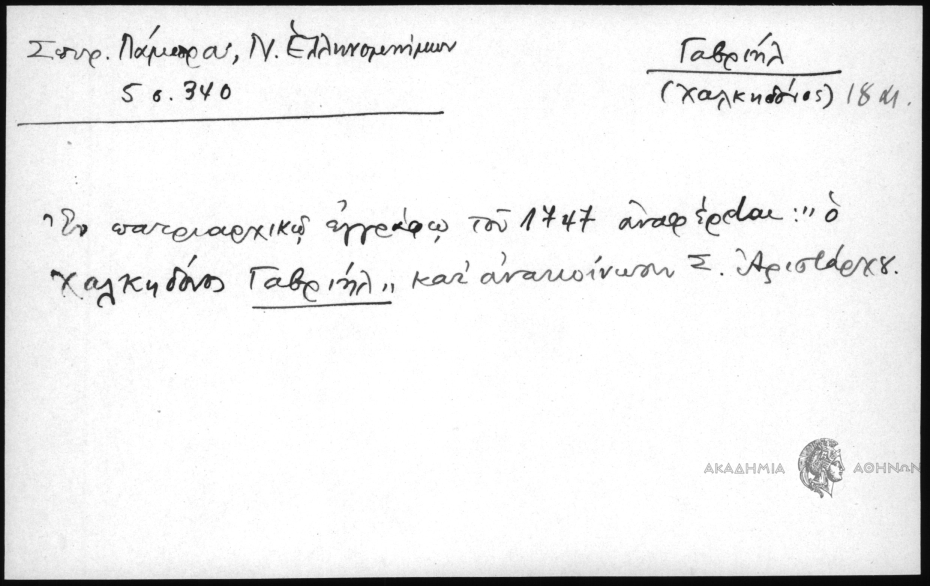 Σπυρ. Λάμπρα, Ν. Ἑλληνομνήμων
5 σ. 340
Γαβριήλ
(Χαλκηδόνος) 18 αι.
Ἐν πατριαρχικῷ ἐγγράφῳ τοῦ 1747 ἀναφέρεται: "ὁ
Χαλκηδόνος Γαβριήλ" κατ' ἀνακοίνωσιν Σ. Ἀριστάρχου.
ΑΚΑΔΗΜΙΑ ΑΘΗΝΩΝ